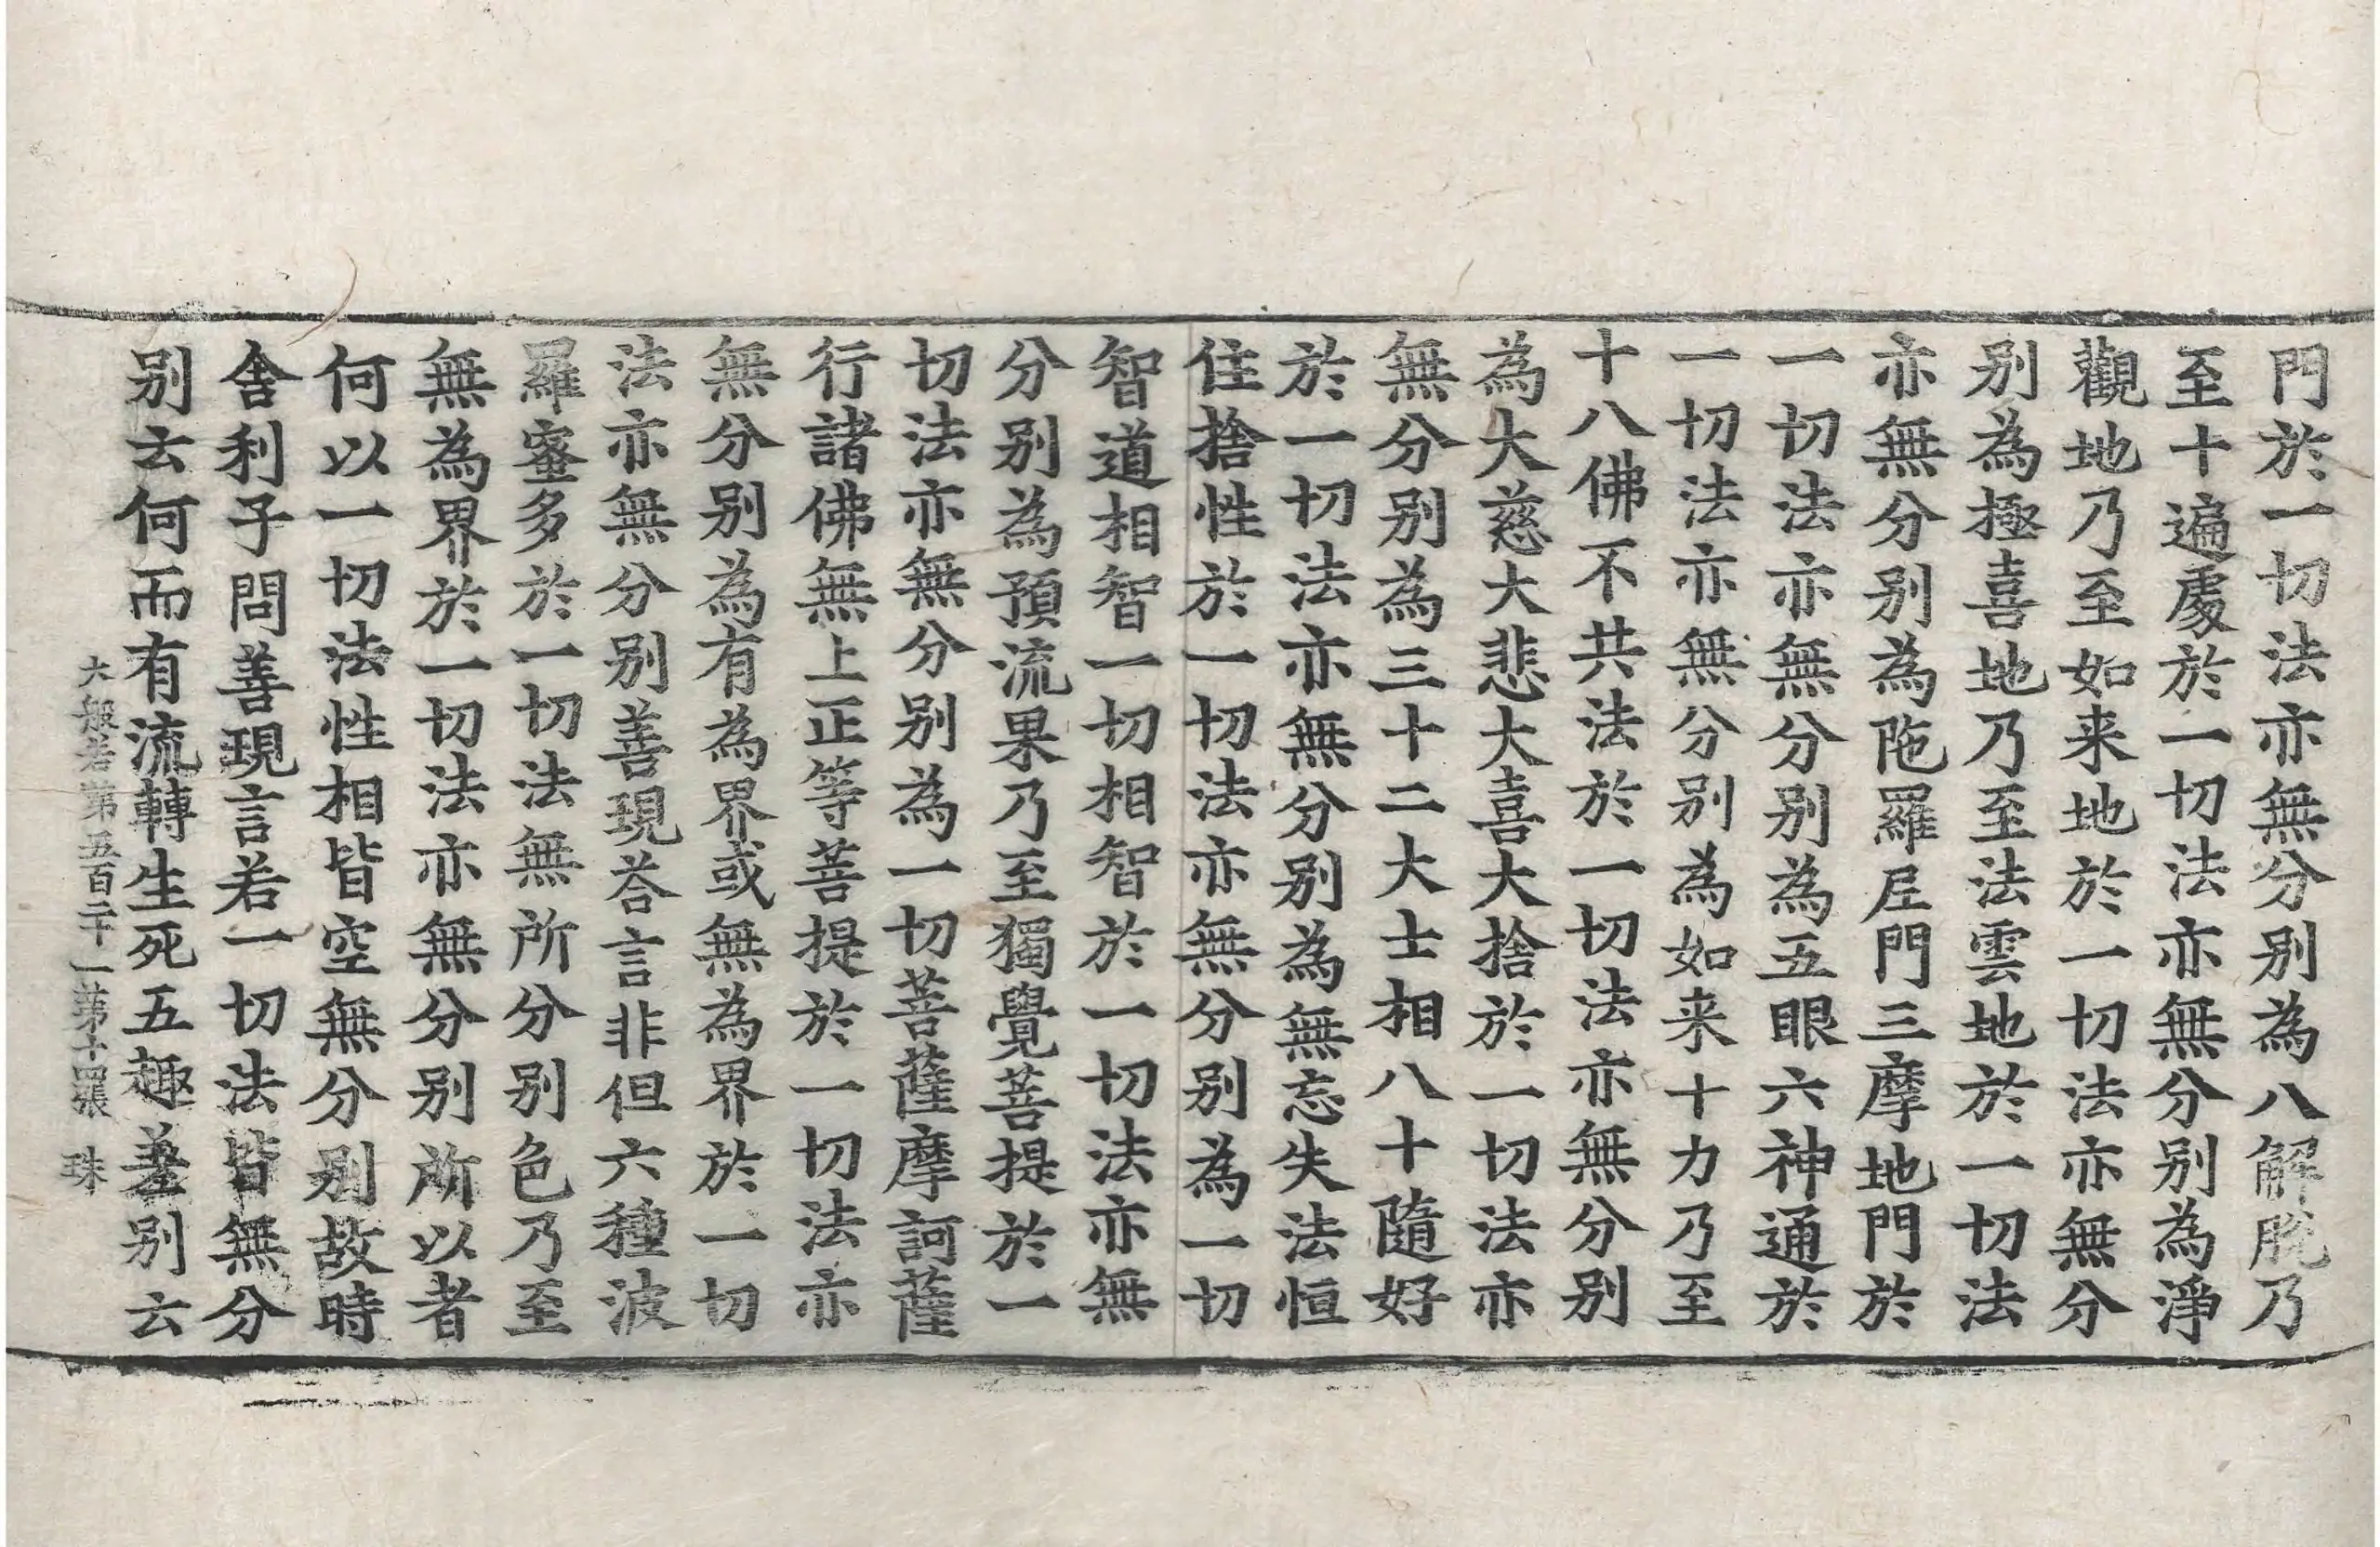 門於一切法亦無分别為八解脫乃
至十遍處於一切法亦無分别為淨
觀地乃至如来地於一切法亦無分
别為極喜地乃至法雲地於一切法
亦無分别為陁羅尼門三摩地門於
一切法亦無分别為五眼六神通於
一切法亦無分别為如来十力乃至
十八佛不共法於一切法亦無分别
為大慈大悲大喜大捨於一切法亦
無分别為三十二大士相八十隨好
於一切法亦無分别為無忘失法恒
住捨性於一切法亦無分别為一切
智道相智一切相智於一切法亦無
分别為預流果乃至獨覺菩提於一
切法亦無分别為一切菩薩摩訶薩
行諸佛無上正等菩提於一切法亦
無分别為有為界或無為界於一切
法亦無分别善現荅言非但六種波
羅蜜多於一切法無所分别色乃至
無為界於一切法亦無分别所以者
何以一切法性相皆空無分别故時
舍利子問善現言若一切法皆無分
别云何而有流轉生死五趣差别云
大般若第五百二十一第十四張 珠